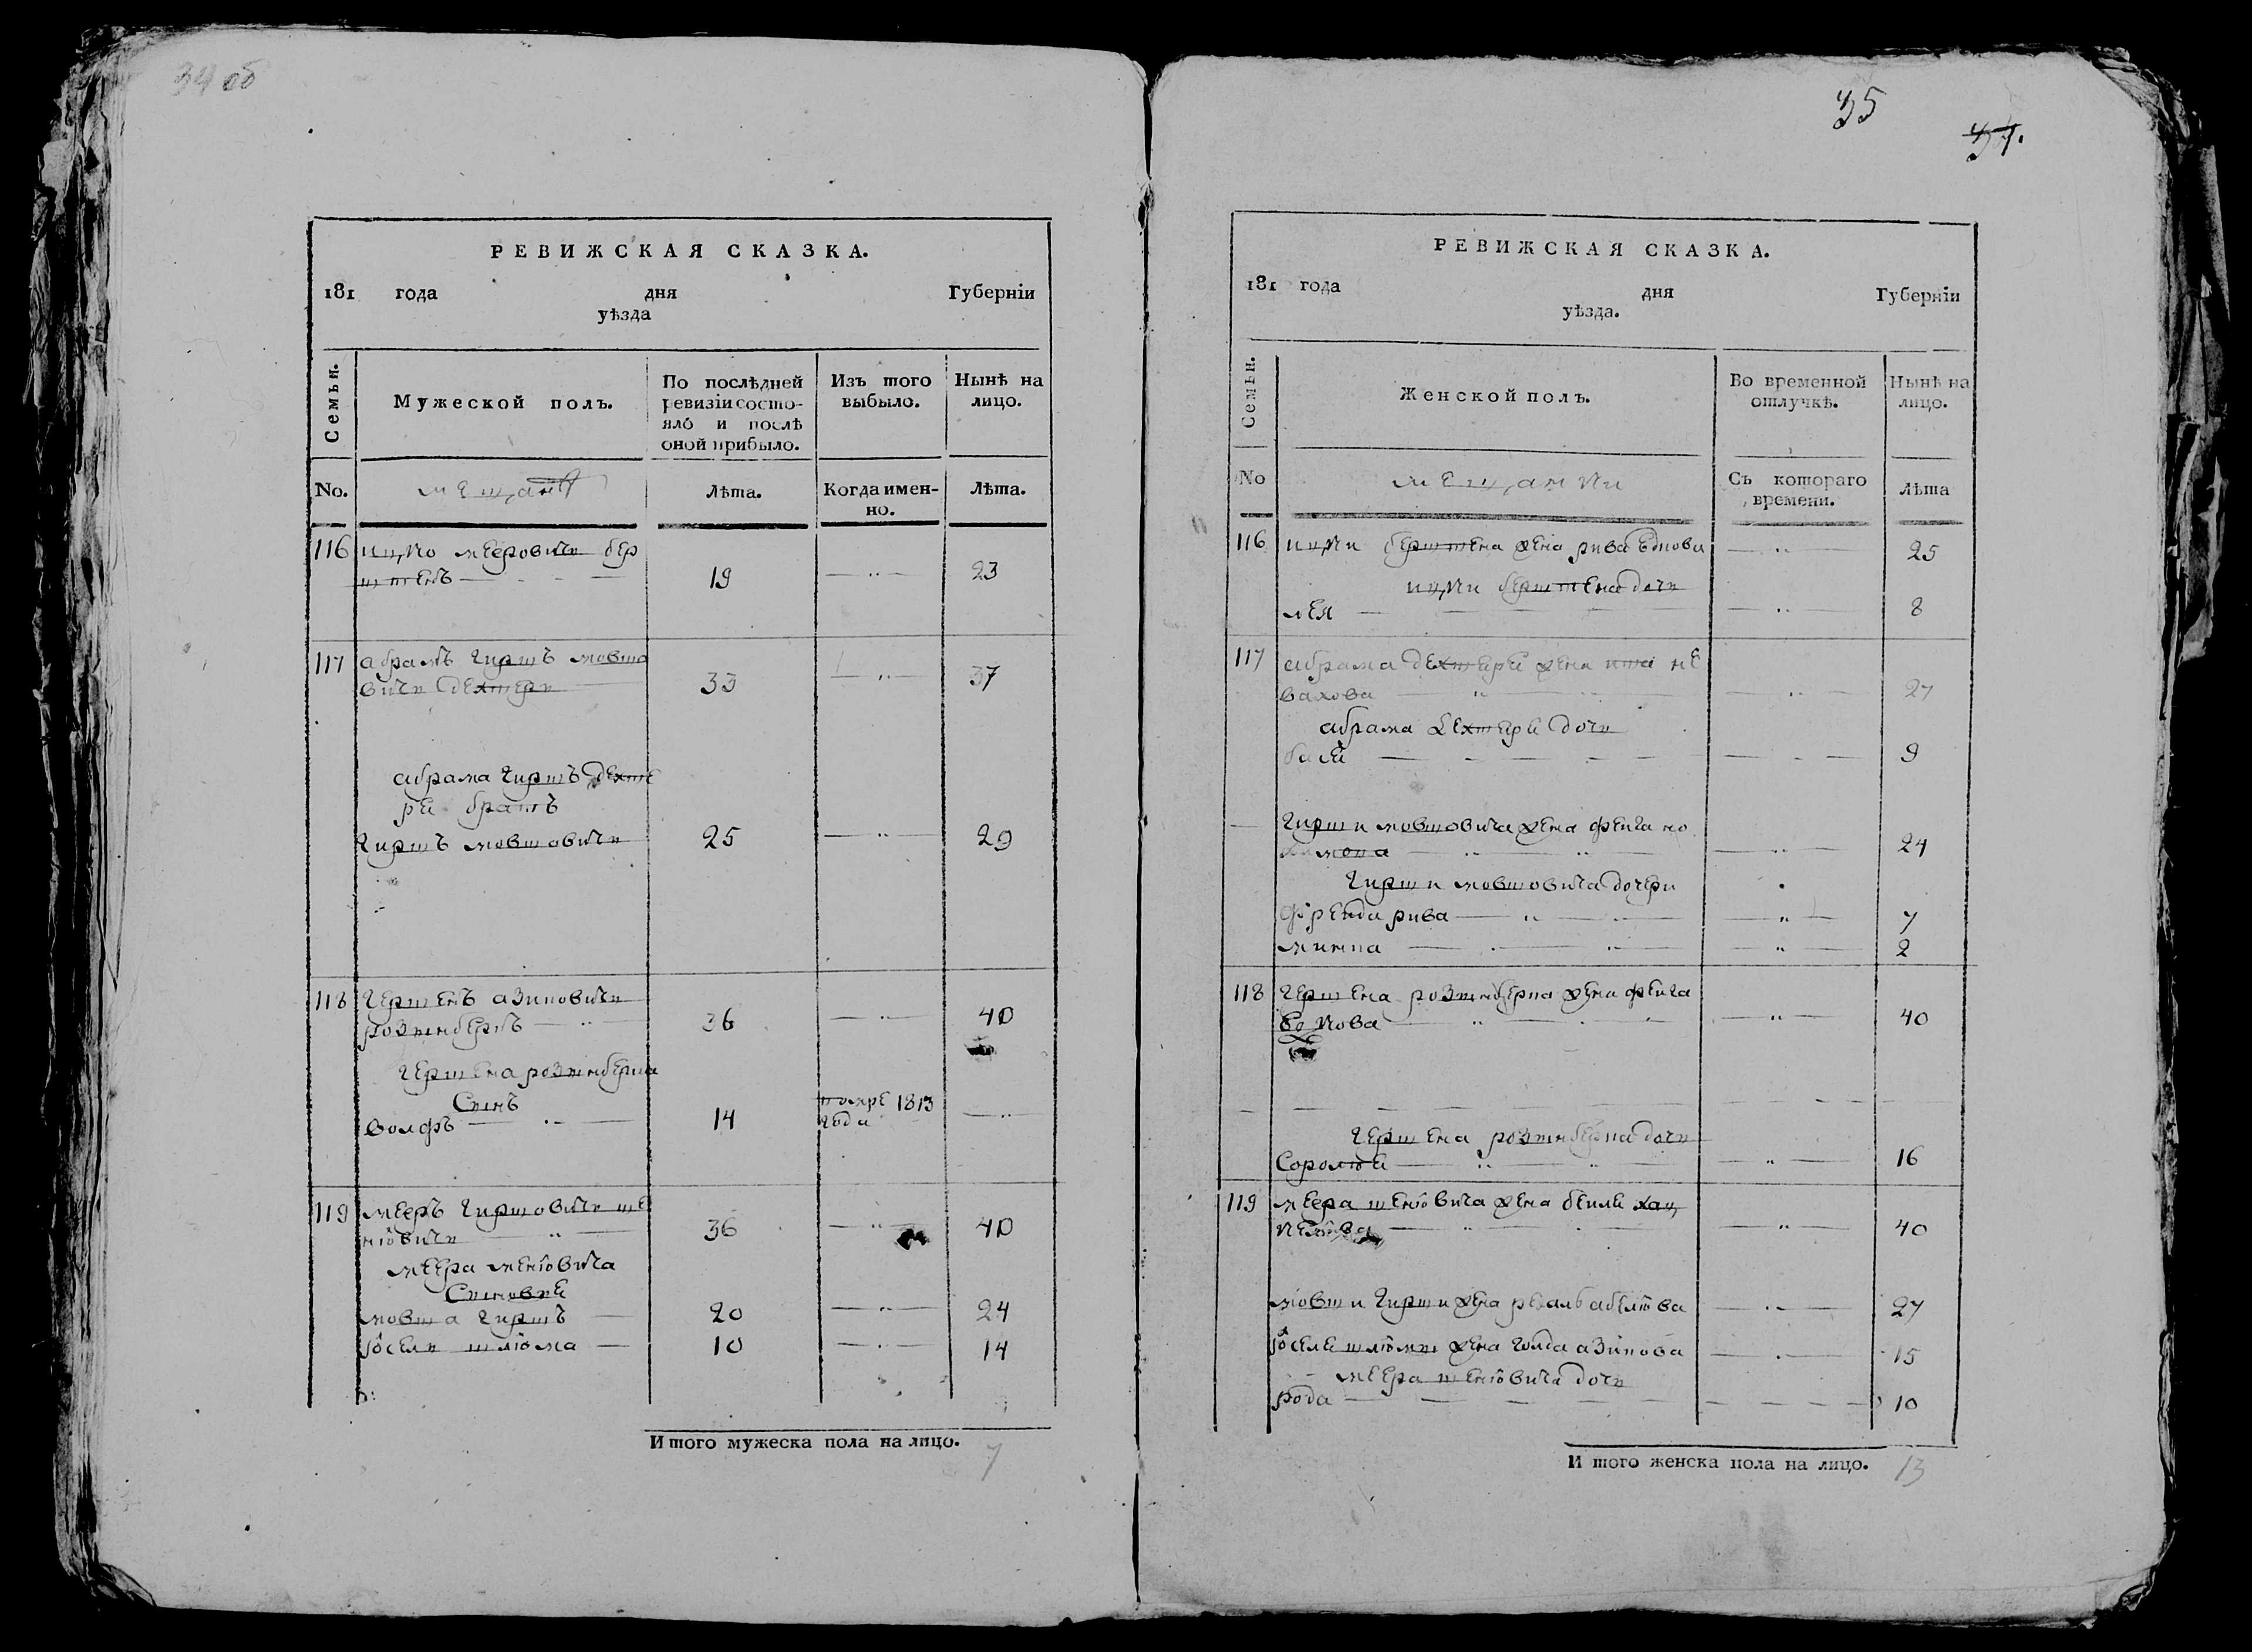 34 об
РЕВИЖСКАЯ СКАЗКА.
181 года дня Губерніи
уѣзда
Семьи.
Мужеской полъ.
По послѣдней
ревизіи состо-
яло и послѣ
оной прибыло.
Изъ того
выбыло.
Нынѣ на
лицо.
No.
мещанъ
Лѣта.
Когда имен-
но.
Лѣта.
116 ицко мееровичь бер
штенъ 19 23
117 абрамъ гиршъ мовшо
вичь дехтерь 33 37
абрама гиршъ дехте
ра братъ
гиршъ мовшовичь 25 29
118 гершенъ азиковичь
розенберъ 36 40
гершена розенберга
сынъ
волфъ 14 помре 1813
года
119 мееръ гиршовичь ме
нїовичь 36 40
меера менїовича
сыновья
мовша гиршъ 20 24
їосель шлїома 10 14
Итого мужеска пола на лицо. 7
35
34.
РЕВИЖСКАЯ СКАЗКА.
181 года дня Губерніи
уѣзда.
Семьи.
Женской полъ.
Во временной
отлучкѣ.
Нынѣ на
лицо.
No
мещанки
Съ котораго
времени.
Лѣта
116 ицки берштена жена рива 25
ицки берштена дочь
лея 8
117 абрама дехтера жена
вахова 27
абрама дехтера дочь
бася 9
гирши мовшовича жена феига но
24
гирши мовшовича дочери
фреида рива 7
минца 2
118 гершена розенберга жена феига
40
гершена розенберга дочь
соролея 16
119 меера менїовича жена беила хац
келїова 40
мовши гирши жена абелїова 27
їоселя шлїомы жена голда азикова 15
меера менїовича дочь
рода 10
Итого женска пола на лицо. 13